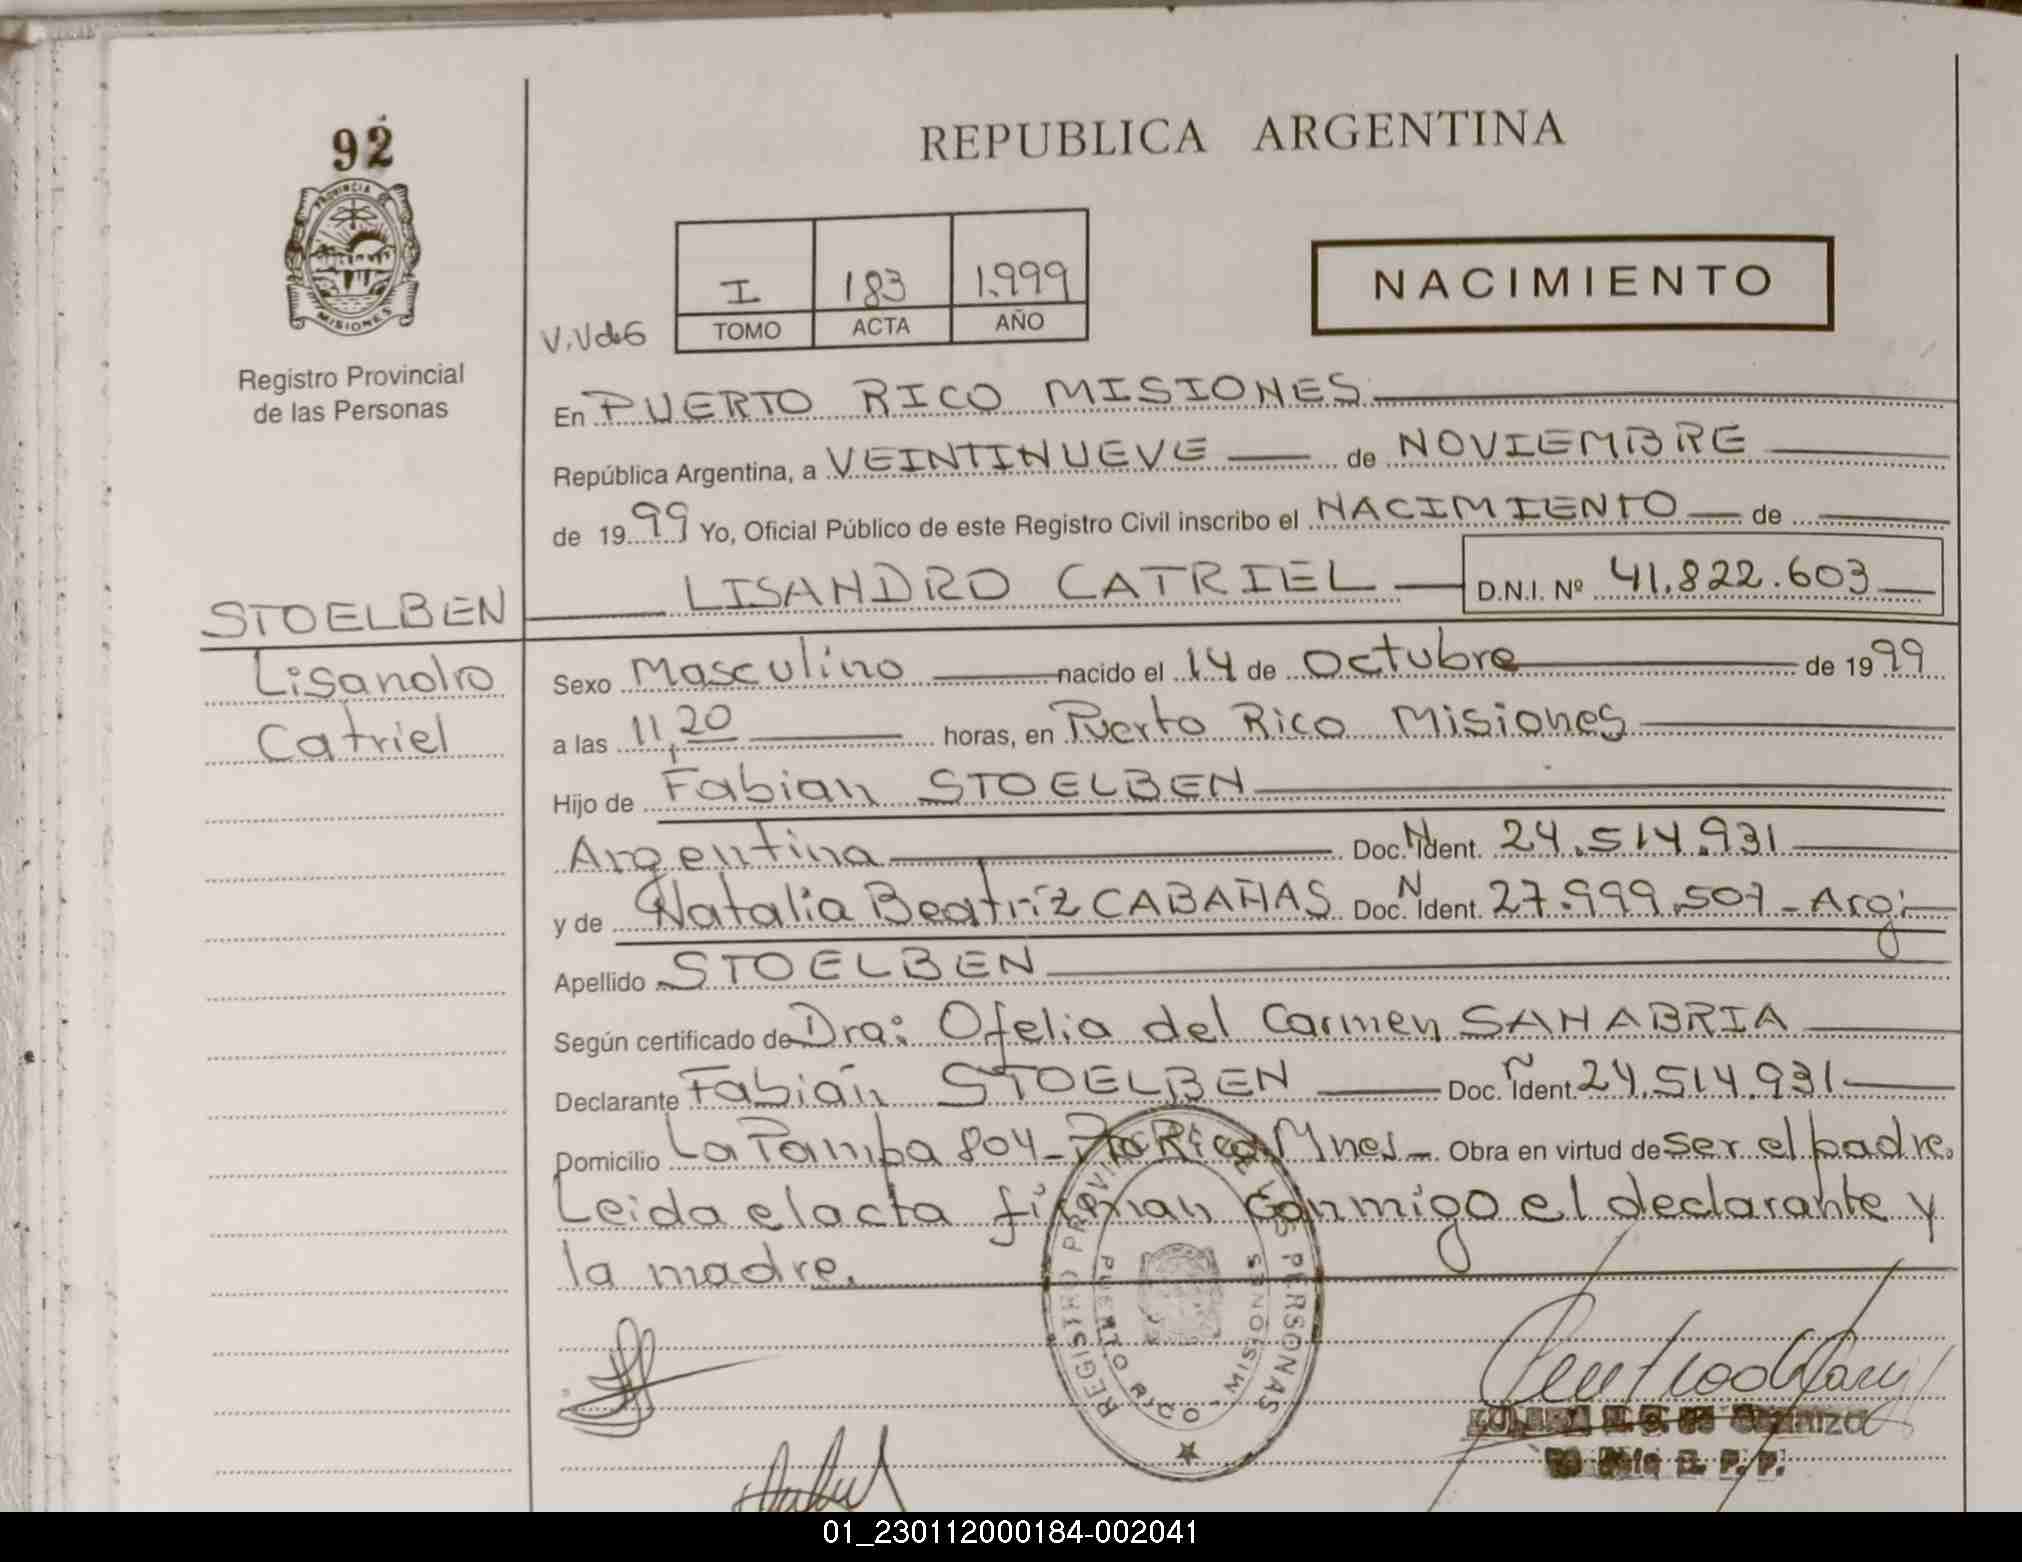 92
PROVINCIA DE
MISIONES
Registro Provincial
de las Personas
REPUBLICA ARGENTINA
I 183 1.999
TOMO ACTA AÑO
NACIMIENTO
V.VdeG
En PUERTO RICO MISIONES
República Argentina, a VEINTINUEVE de NOVIEMBRE
de 1999 Yo, Oficial Público de este Registro Civil inscribo el NACIMIENTO de
LISANDRO CATRIEL D.N.I. Nº 41.822.603
STOELBEN
Lisandro
Catriel
Sexo Masculino nacido el 14 de Octubre de 1999
a las 11,20 horas, en Puerto Rico Misiones
Hijo de Fabian STOELBEN
Argentina Doc. N Ident. 24.514.931
y de Natalia Beatríz CABAÑAS Doc. N Ident. 27.999.507 - Arg:
Apellido STOELBEN
Según certificado de Dra: Ofelia del Carmen SANABRIA
Declarante Fabián STOELBEN Doc. N Ident. 24.514.931
Domicilio La Pampa 804 - Pto Rico Mnes - Obra en virtud de ser el padre.
Leida el acta firman conmigo el declarante y
la madre.
REGISTRO PROVINCIAL DE LAS PERSONAS
PUERTO RICO - MISIONES
R. P. P.
01_230112000184-002041